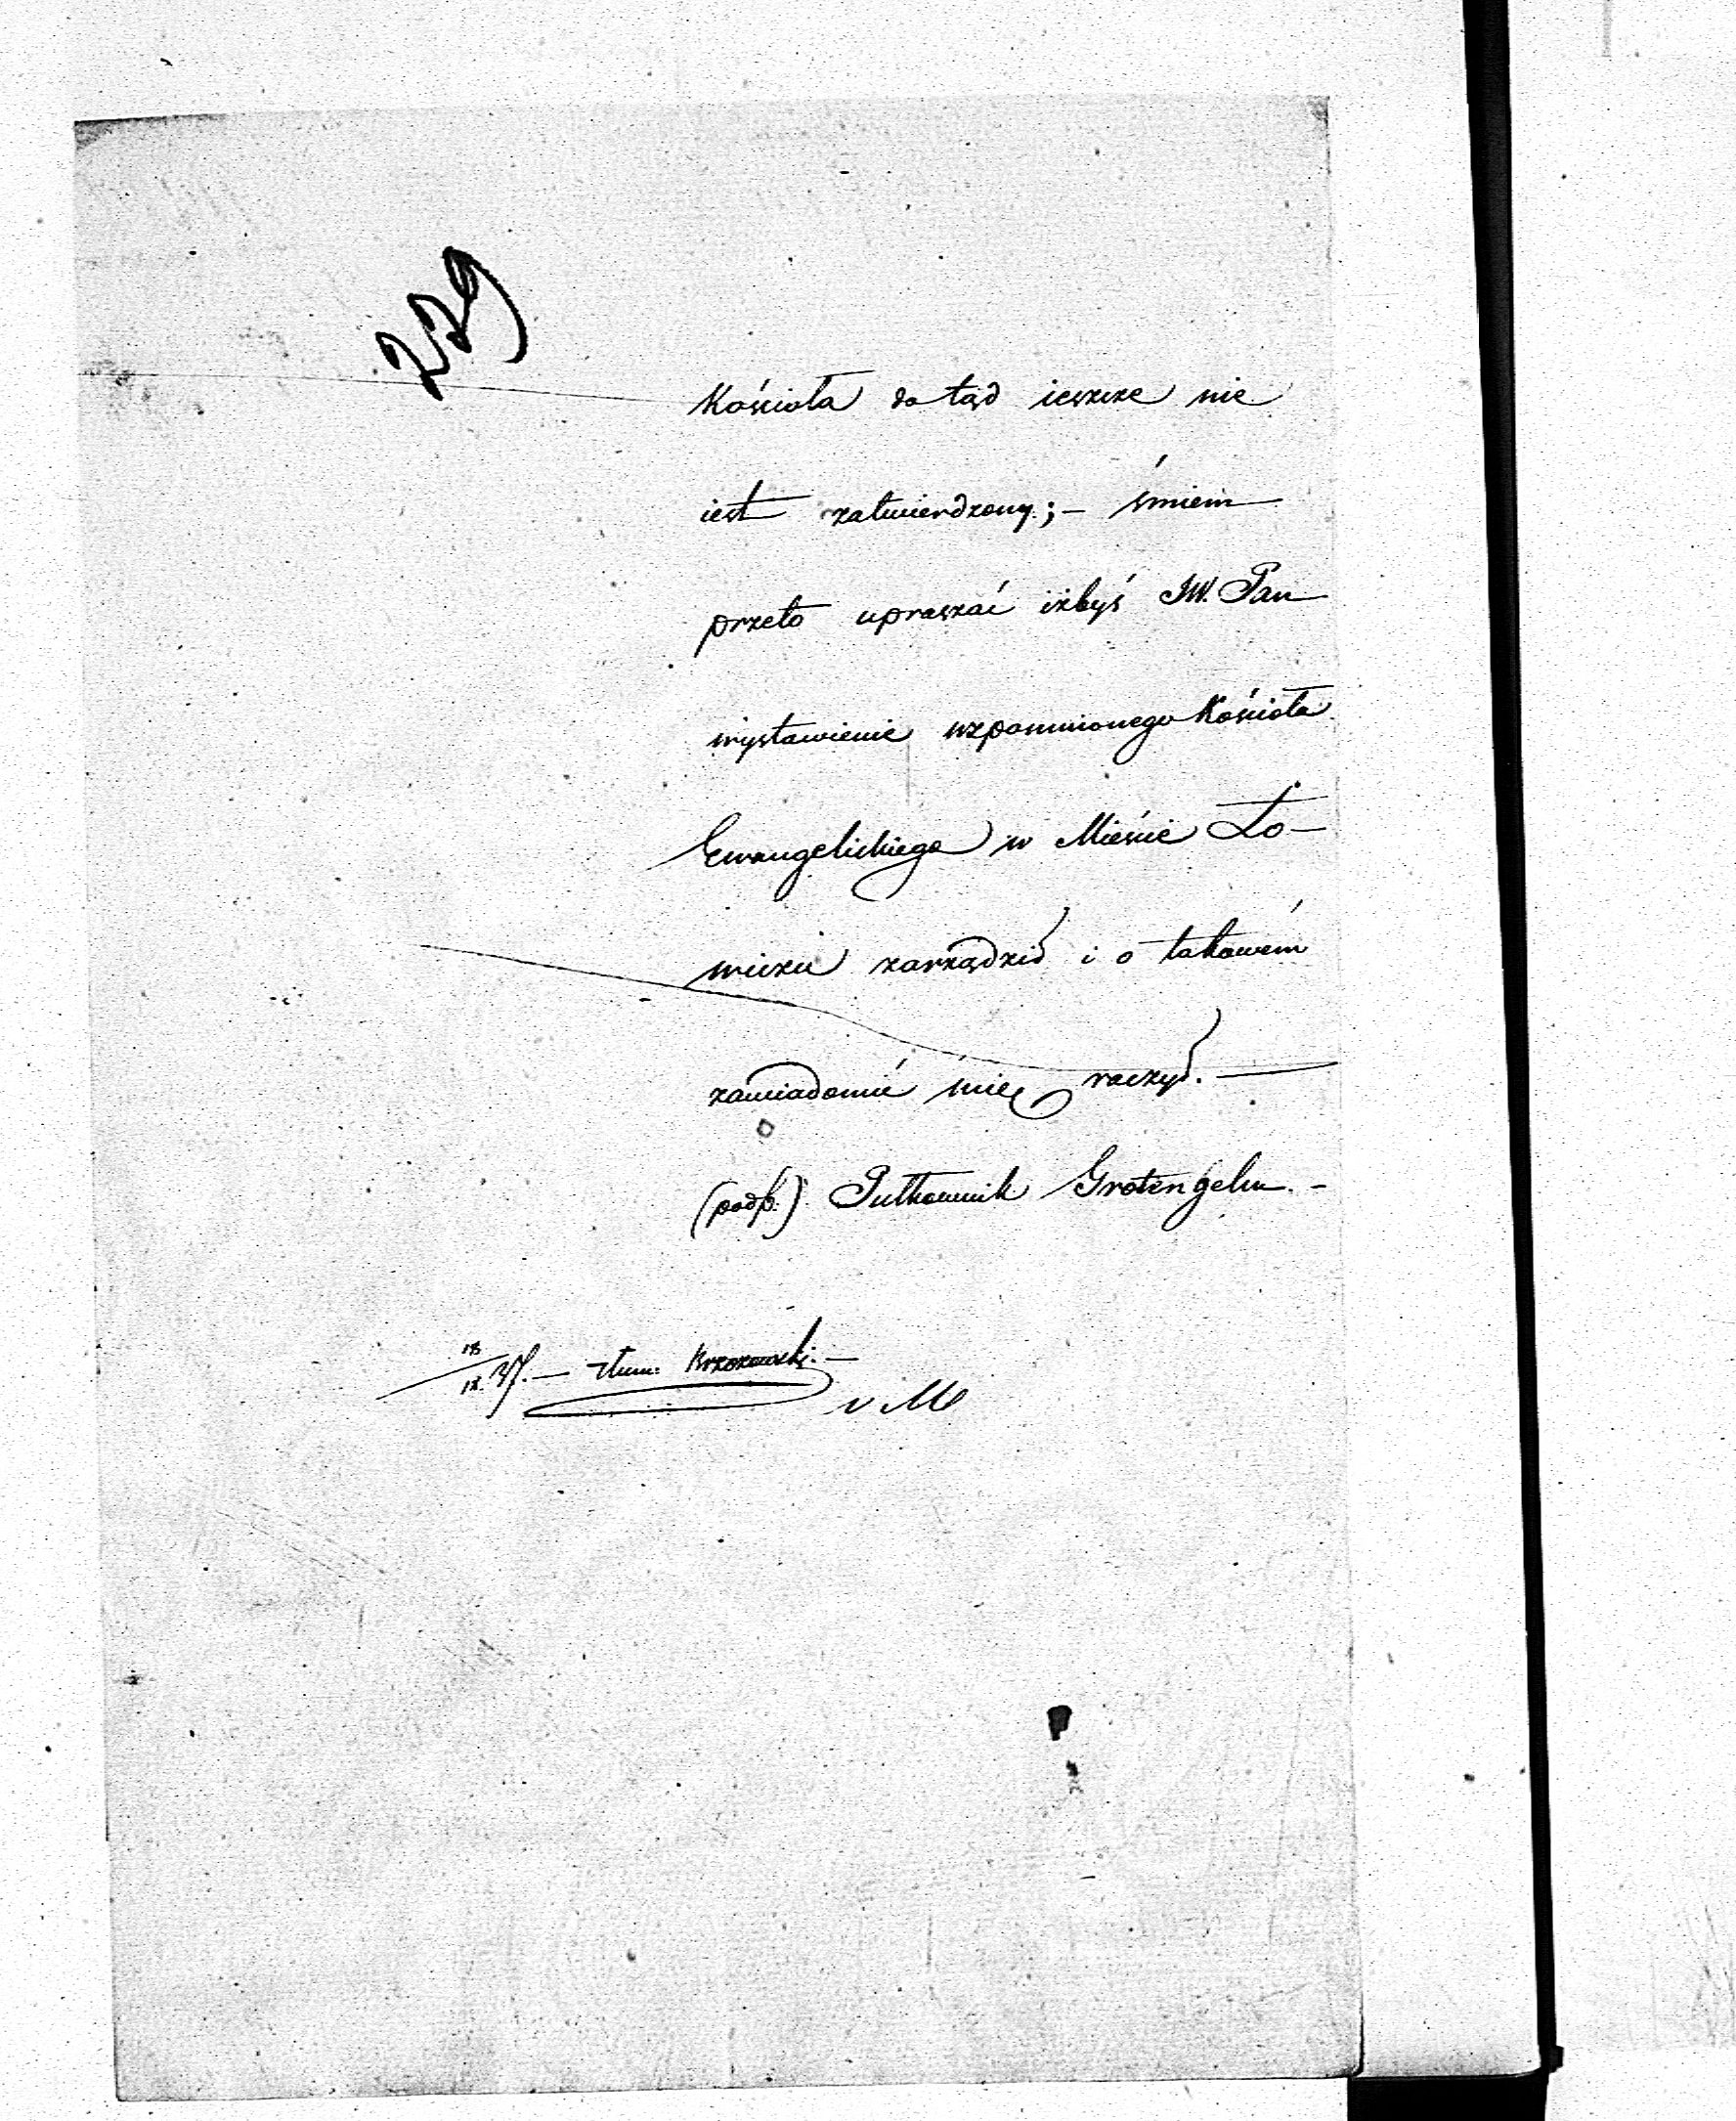 229
Kościoła do tąd ieszcze nie
iest zatwierdzony; – śmiem
przeto upraszać iżbyś JW. Pan
wystawienie wzpomnionego Kościoła
Ewangelickiego w Mieście Ło-
wiczu zarządzić i o takowém
zawiadomić mię raczył. –
(podp.) Pułkownik Grotengelm. –
18/IX 37. – Tłum: Brzozowski. –
v M